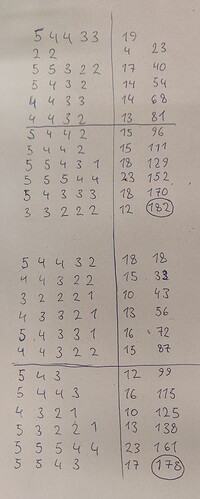 5 4 4 3 3 19
2 2 4 23
5 5 3 2 2 17 40
5 4 3 2 14 54
4 4 3 3 14 68
4 4 3 2 13 81
5 4 4 2 15 96
5 4 4 2 15 111
5 5 4 3 1 18 129
5 5 5 4 4 23 152
5 4 3 3 3 18 170
3 3 2 2 2 12 182
5 4 4 3 2 18 18
4 4 3 2 2 15 33
3 2 2 2 1 10 43
4 3 3 2 1 13 56
5 4 3 3 1 16 72
4 4 3 2 2 15 87
5 4 3 12 99
5 4 4 3 16 115
4 3 2 1 10 125
5 3 2 2 1 13 138
5 5 5 4 4 23 161
5 5 4 3 17 178